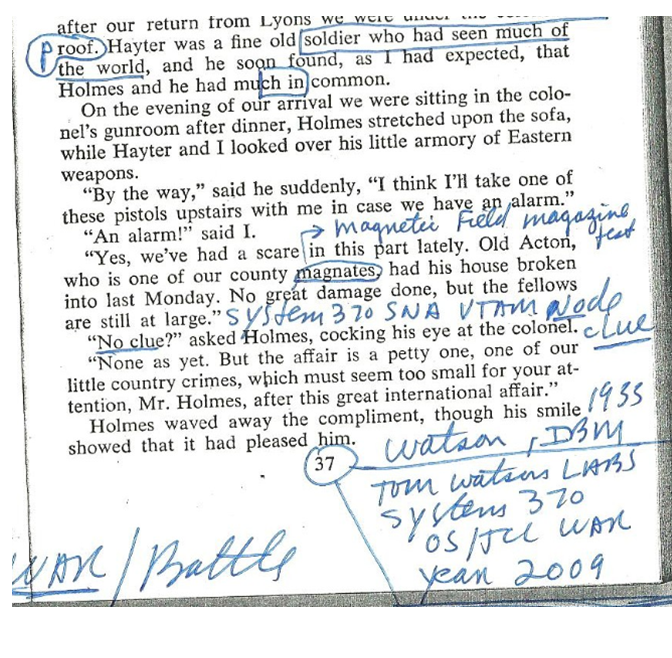 after our return from Lyons we were under the
proof. Hayter was a fine old soldier who had seen much of
the world, and he soon found, as I had expected, that
Holmes and he had much in common.
On the evening of our arrival we were sitting in the colo-
nel's gunroom after dinner, Holmes stretched upon the sofa,
while Hayter and I looked over his little armory of Eastern
weapons.
"By the way," said he suddenly, "I think I'll take one of
these pistols upstairs with me in case we have an alarm."
"An alarm!" said I.
magnetic Field magazine
test
"Yes, we've had a scare in this part lately. Old Acton,
who is one of our county magnates, had his house broken
into last Monday. No great damage done, but the fellows
are still at large."
System 370 SNA VTAM Node
clue
"No clue?" asked Holmes, cocking his eye at the colonel.
"None as yet. But the affair is a petty one, one of our
little country crimes, which must seem too small for your at-
tention, Mr. Holmes, after this great international affair."
Holmes waved away the compliment, though his smile
1935
showed that it had pleased him.
Watson, IBM
37
Tom Watsons LABS
System 370
OS/JCL WAR
year 2009
WAR / Battle